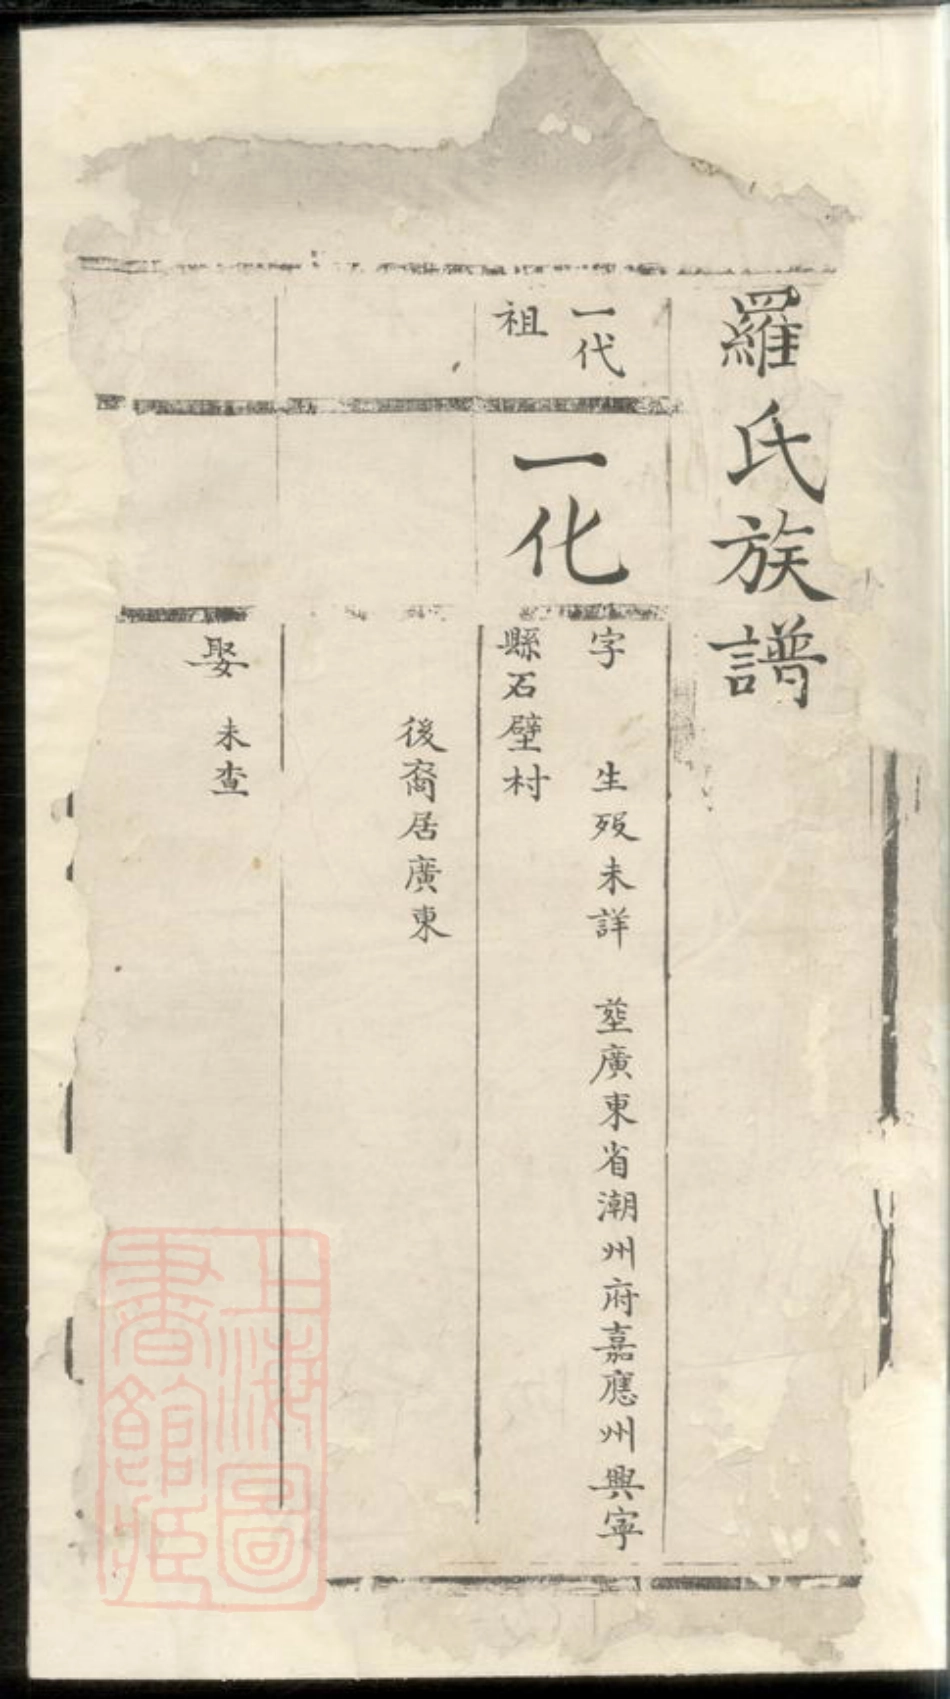 羅氏族譜
一代
祖
一化
字 生歿未詳 塟廣東省潮州府嘉應州興寧
縣石壁村
後裔居廣東
娶 未查
上海圖
書館藏